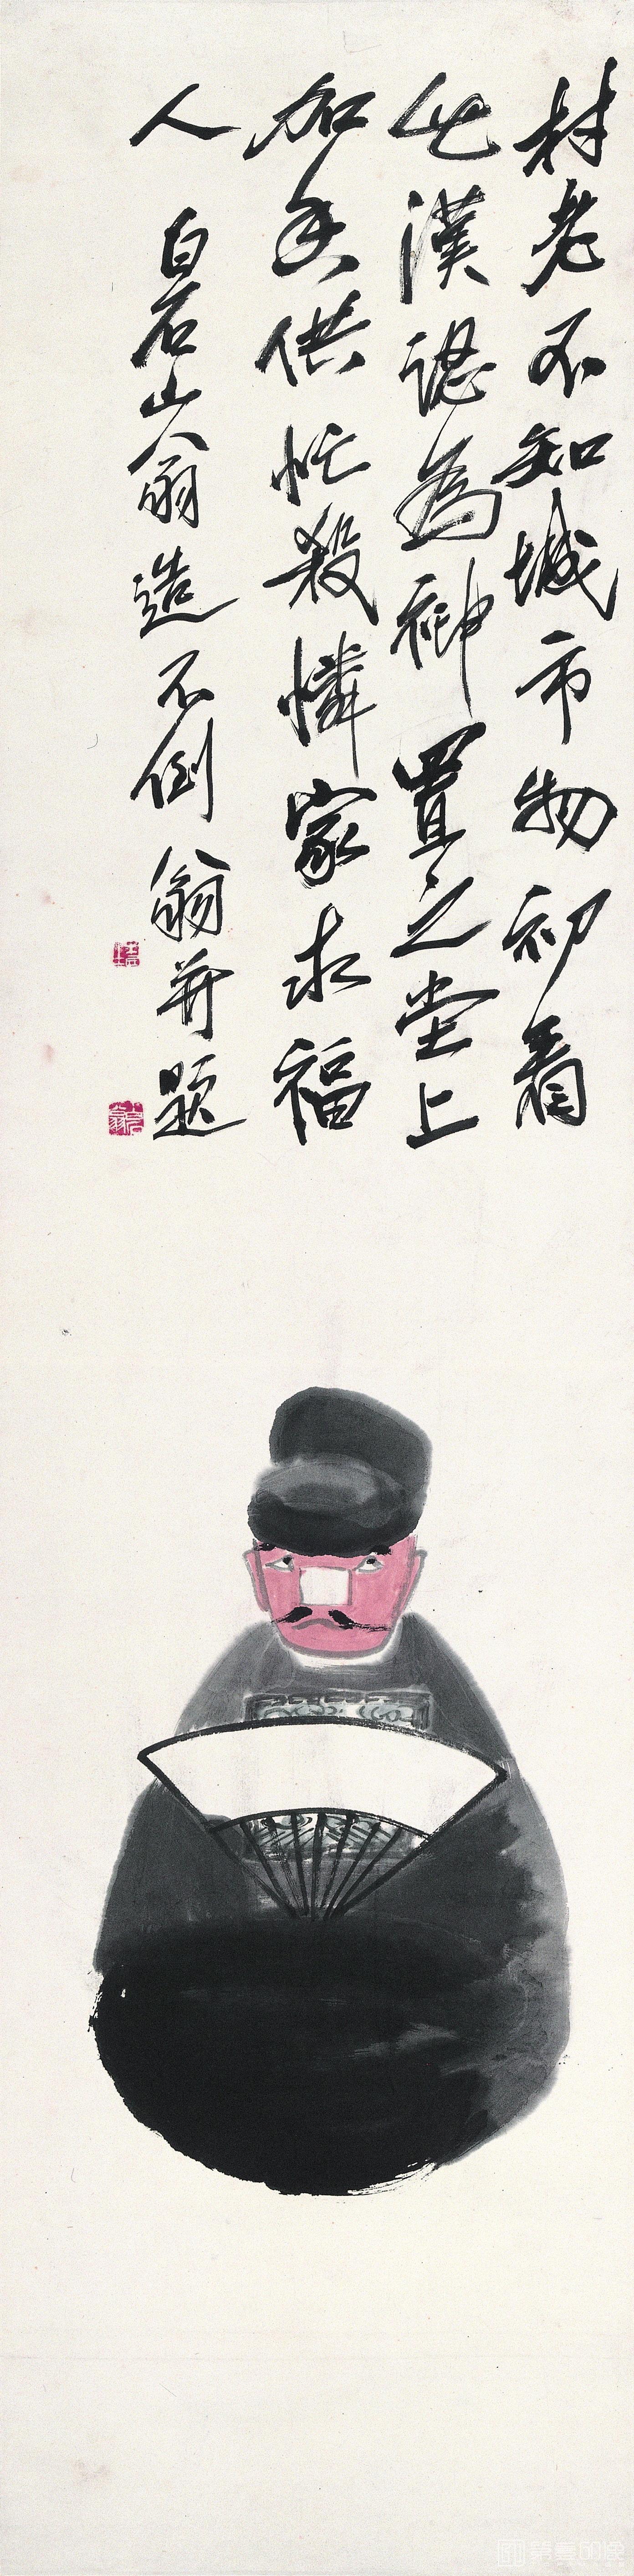 村老不知城市物初看
此漢認為神置之堂上
加香供忙殺憐家求福
人 白石山翁造不倒翁并題